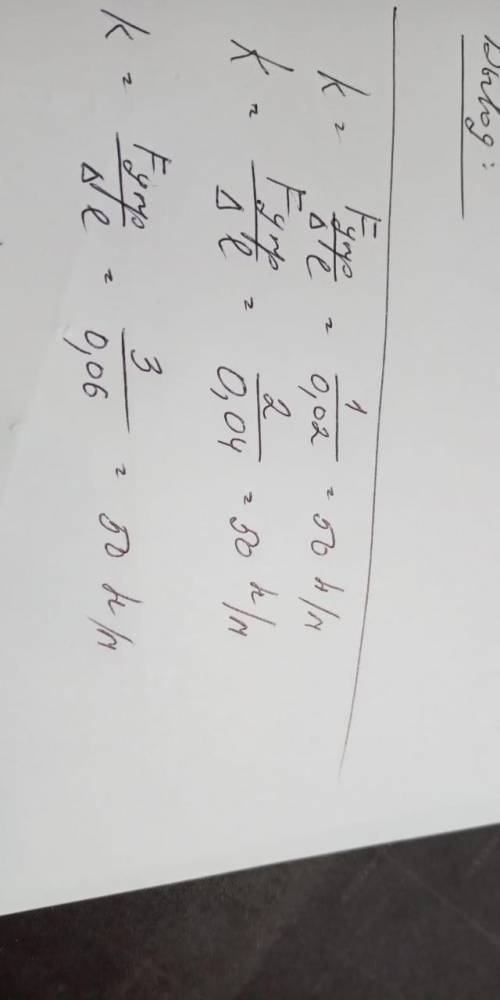 Вывод:
k = Fупр/Δl = 1/0,02 = 50 Н/м
k = Fупр/Δl = 2/0,04 = 50 Н/м
k = Fупр/Δl = 3/0,06 = 50 Н/м